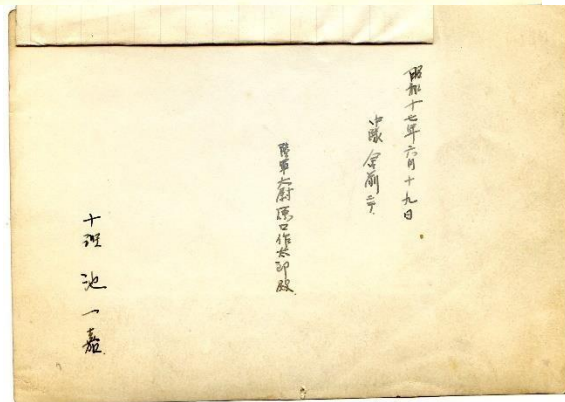 昭和十七年六月十九日
中隊舎前ニテ
陸軍大尉原口作太郎殿
十班 池一嘉